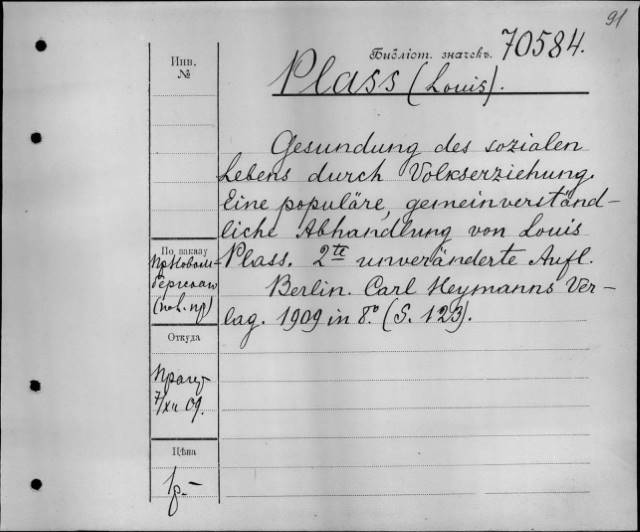 91
Библіот. значекъ. 70584.
Инв.
№
Plass (Louis).
Gesundung des sozialen
Lebens durch Volkserziehung.
Eine populäre, gemeinverständ-
liche Abhandlung von Louis
Plass. 2te unveränderte Aufl.
Berlin. Carl Heymanns Ver-
lag. 1909 in 8.° (S. 123).
По заказу
(нов. пр)
Откуда
7/XII 09.
Цѣна
1р.-